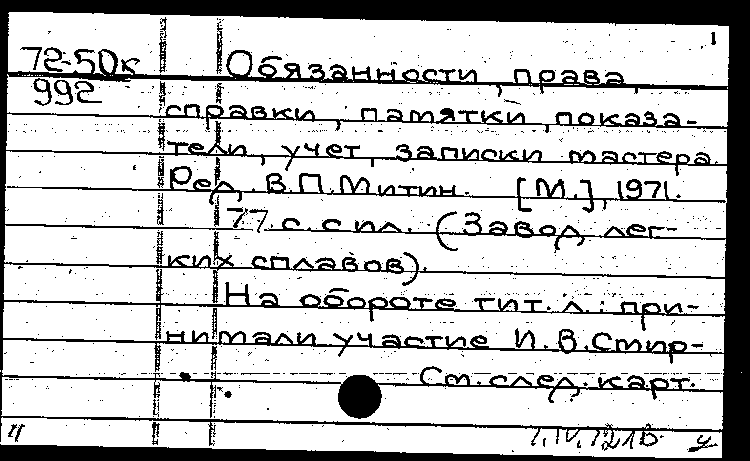 1
72-50к Обязанности, права,
992
справки, памятки, показа-
тели, учет, записки мастера.
Ред. В.П.Митин. [М.], 1971.
77 с. с ил. (Завод лег-
ких сплавов).
На обороте тит. л.: при-
нимали участие И.В.Стир-
См. след. карт.